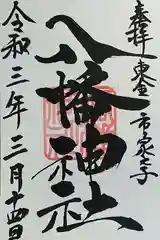 奉拝 東金市家之子
八幡神社
令和三年三月十四日